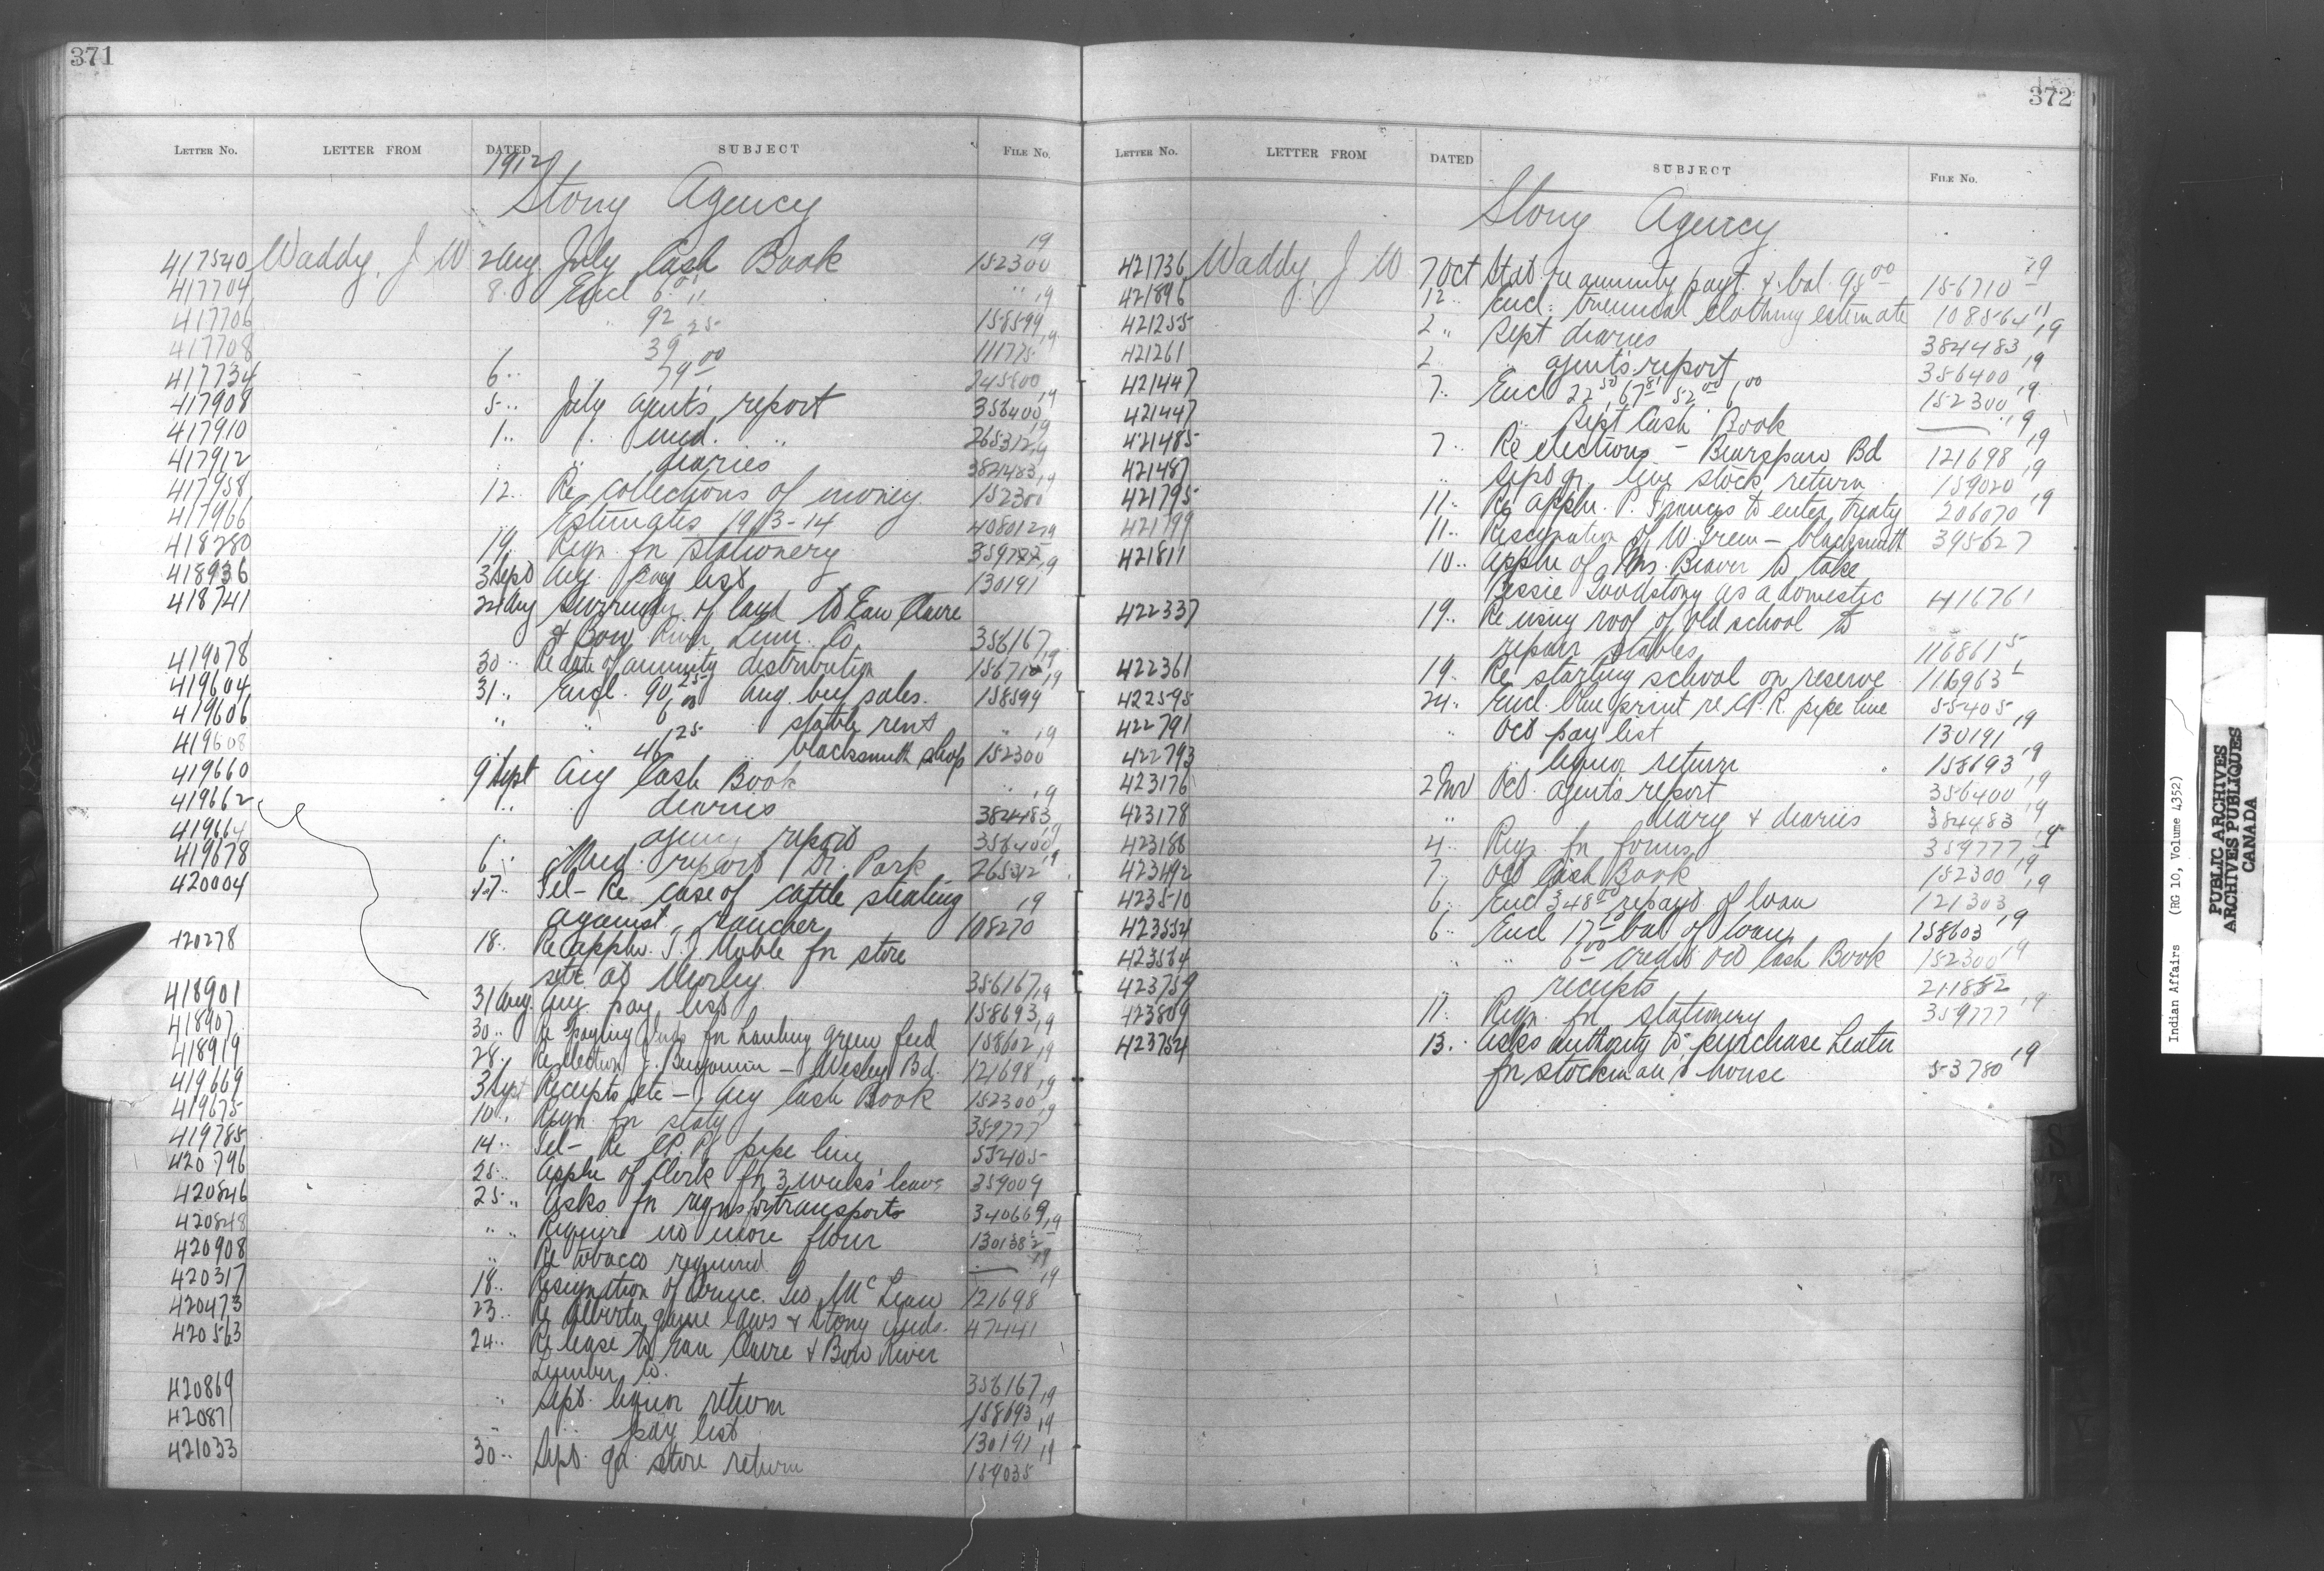 371
LETTER No. LETTER FROM DATED SUBJECT FILE No.
1912
Stony Agency
417540 Waddy, J W 2 Aug July Cash Book 152300 19
417704 8 " Encl 6.00 " " 19
417706 " 92.25 158599 19
417708 39 111775
417734 6 " 79.00 245800 19
417908 5 " July agent's report 356400 19
417910 1 " " med. " 265312 19
417912 " diaries 384483 19
417958 12 " Re collections of money 152300
417966 Estimates 1913-14 408012 19
418280 19 " Reqn. for stationery 359777 19
418936 3 Sept Aug. pay list 130191
418741 24 Aug Surrender of land to Eau Claire
& Bow River Lum. Co. 356167 19
419078 30 " Re date of annuity distribution 156710 19
419604 31 " Encl. 90.25 Aug. beef sales. 158599
419606 " " 6.00 stable rent " 19
419608 46.25 blacksmith shop 152300
419660 9 Sept Aug Cash Book " 19
419662 " " diaries 384483
419664 agency report 356400 19
419678 6 " Med. report Dr. Park 265312 19
420004 17 " Tel - Re case of cattle stealing
against rancher 108270 19
420278 18 " Re appln. T. J. Noble for store
site at Morley 356167 19
418901 31 Aug Aug. pay list 158693 19
418907 30 " Re paying Inds for hauling green feed 158602 19
418919 28 " Re election J. Benjamin - Wesley Bd. 121698 19
419669 3 Sept Receipts etc - Aug Cash Book 152300 19
419675 10 " Reqn. for staty 359777
419785 14 " Tel - Re C.P.R. pipe line 55405
420796 25 " Appln of Clerk for 3 weeks' leave 359009
420846 25 " Asks for reqns for transports 340669 19
420848 " " Require no more flour 130138 19
420908 " Re tobacco required 19
420317 18 " Resignation of Counc. Geo. McLean 121698
420473 23 " Re Alberta game laws & Stony Inds. 47441
420563 24 " Re lease to Eau Claire & Bow River
Lumber Co. 356167 19
420869 " Sept. liquor return 158693 19
420871 " " pay list 130191 19
421033 30 " Sept. qr. store return 159035
372
LETTER No. LETTER FROM DATED SUBJECT FILE No.
Stony Agency
421736 Waddy, J W 7 Oct Stat. re annuity payt. & bal. 98.00 156710 19
421896 12 " Encl. triennial clothing estimate 108564 11
421255 2 " Sept diaries 384483 19
421261 2 " agent's report 356400 19
421447 7 " Encl 22.50, 67.81 52.00 6.00 152300 19
421447 " Sept Cash Book " 19
421485 7 " Re elections - Bearspaw Bd 121698 19
421487 " Sept qr. live stock return 159020 19
421795 11 " Re appln. P. Frances to enter treaty 206070 19
421799 11 " Resignation of W. Green - blacksmith 395627
421811 10 " Appln of Mrs. Beaver to take
Bessie Goodstony as a domestic 416761
422337 19 " Re using roof of old school to
repair stables 116861 5
422361 19 " Re starting school on reserve 116963
422595 24 " Encl. blue print re C.P.R. pipe line 55405
422791 " Oct pay list 130191 19
422793 " liquor return 158693 19
423176 2 Nov Oct. agent's report 356400 19
423178 " diary & diaries 384483 19
423188 4 " Reqn. for forms 359777 19
423492 7 " Oct Cash Book 152300 19
423510 6 " Encl 348.00 repayt of loan 121303
423554 6 " Encl 17.15 bal of loan 158603 19
423564 " " 6.00 credit Oct Cash Book 152300 19
423759 " receipts 211882
423809 11 " Reqn. for stationery 359777 19
423754 13 " Asks authority to purchase heater
for stockman's house 53780 19
Indian Affairs (RG 10, Volume 4352)
PUBLIC ARCHIVES
ARCHIVES PUBLIQUES
CANADA